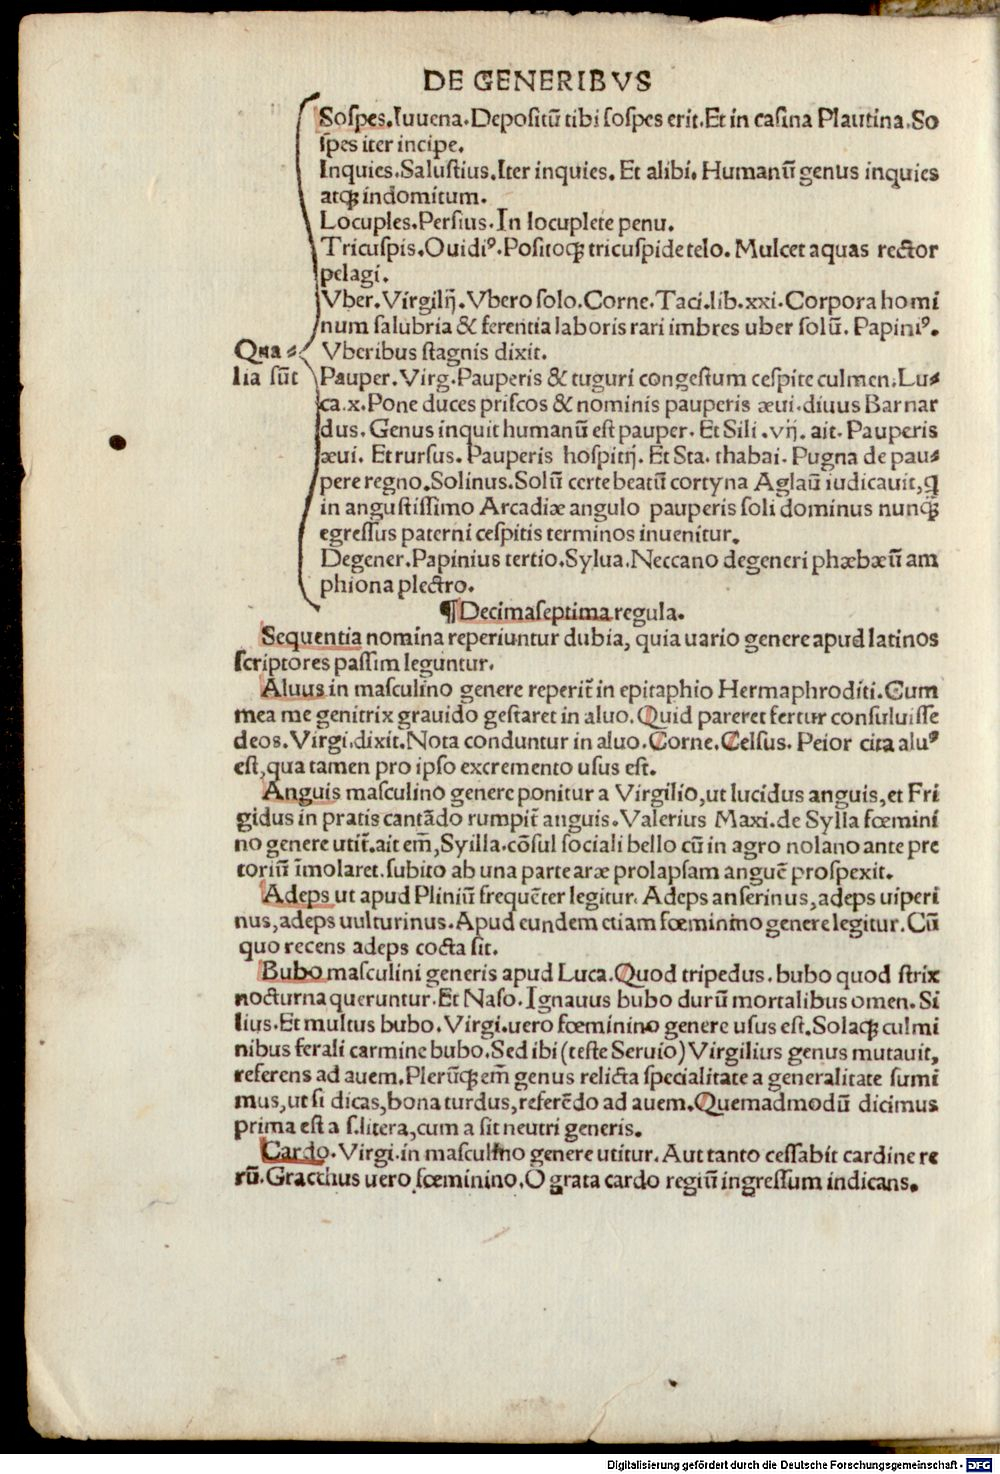 DE GENERIBVS
Soſpes.Iuuena.Depoſitū tibi ſoſpes erit.Et in caſina Plautina.So
ſpes iter incipe.
Inquies.Saluſtius.Iter inquies. Et alibi. Humanū genus inquies
atqꝫ indomitum.
Locuples.Perſius.In locuplete penu.
Tricuſpis.Ouidiꝰ.Poſitoqꝫ tricuſpide telo. Mulcet aquas rector
pelagi.
Vber.Virgilij.Vbero ſolo.Corne.Taci.lib.xxi.Corpora homi
num ſalubria & ferentia laboris rari imbres uber ſolū. Papiniꝰ.
Qua⸗
Vberibus ſtagnis dixit.
lia ſūt
Pauper.Virg.Pauperis & tuguri congeſtum ceſpite culmen.Lu⸗
ca.x.Pone duces priſcos & nominis pauperis æui.diuus Barnar
dus. Genus inquit humanū eſt pauper. Et Sili .vij. ait. Pauperis
æui. Et rurſus. Pauperis hoſpitij. Et Sta. thabai. Pugna de pau⸗
pere regno.Solinus.Solū certe beatū cortyna Aglaū iudicauit,ꝙ
in anguſtiſſimo Arcadiæ angulo pauperis ſoli dominus nunqꝫ
egreſſus paterni ceſpitis terminos inuenitur.
Degener.Papinius tertio.Sylua.Neccano degeneri phæbæū am
phiona plectro.
¶Decimaſeptima regula.
Sequentia nomina reperiuntur dubia, quia uario genere apud latinos
ſcriptores paſſim leguntur.
Aluus in maſculino genere reperit̄ in epitaphio Hermaphroditi.Cum
mea me genitrix grauido geſtaret in aluo. Quid pareret fertur conſuluiſſe
deos.Virgi.dixit.Nota conduntur in aluo.Corne.Celſus. Peior cita aluꝰ
eſt,qua tamen pro ipſo excremento uſus eſt.
Anguis maſculino genere ponitur a Virgilio,ut lucidus anguis,et Fri
gidus in pratis cantādo rumpit̄ anguis.Valerius Maxi.de Sylla fœmini
no genere utit̄.ait em̄,Syilla.cōſul ſociali bello cū in agro nolano ante pre
toriū īmolaret.ſubito ab una parte aræ prolapſam anguē proſpexit.
Adeps ut apud Pliniū frequēter legitur. Adeps anſerinus,adeps uiperi
nus,adeps uulturinus.Apud eundem etiam fœminino genere legitur.Cū
quo recens adeps cocta ſit.
Bubo maſculini generis apud Luca.Quod tripedus.bubo quod ſtrix
nocturna queruntur.Et Naſo.Ignauus bubo durū mortalibus omen. Si
lius.Et multus bubo.Virgi.uero fœminino genere uſus eſt.Solaqꝫ culmi
nibus ferali carmine bubo.Sed ibi (teſte Seruio)Virgilius genus mutauit,
referens ad auem.Plerūqꝫ em̄ genus relicta ſpecialitate a generalitate ſumi
mus,ut ſi dicas,bona turdus,referēdo ad auem.Quemadmodū dicimus
prima eſt a ſ.litera,cum a ſit neutri generis.
Cardo.Virgi.in maſculino genere utitur.Aut tanto ceſſabit cardine re
rū.Gracchus uero fœminino.O grata cardo regiū ingreſſum indicans.
Digitalisierung gefördert durch die Deutsche Forschungsgemeinschaft - DFG